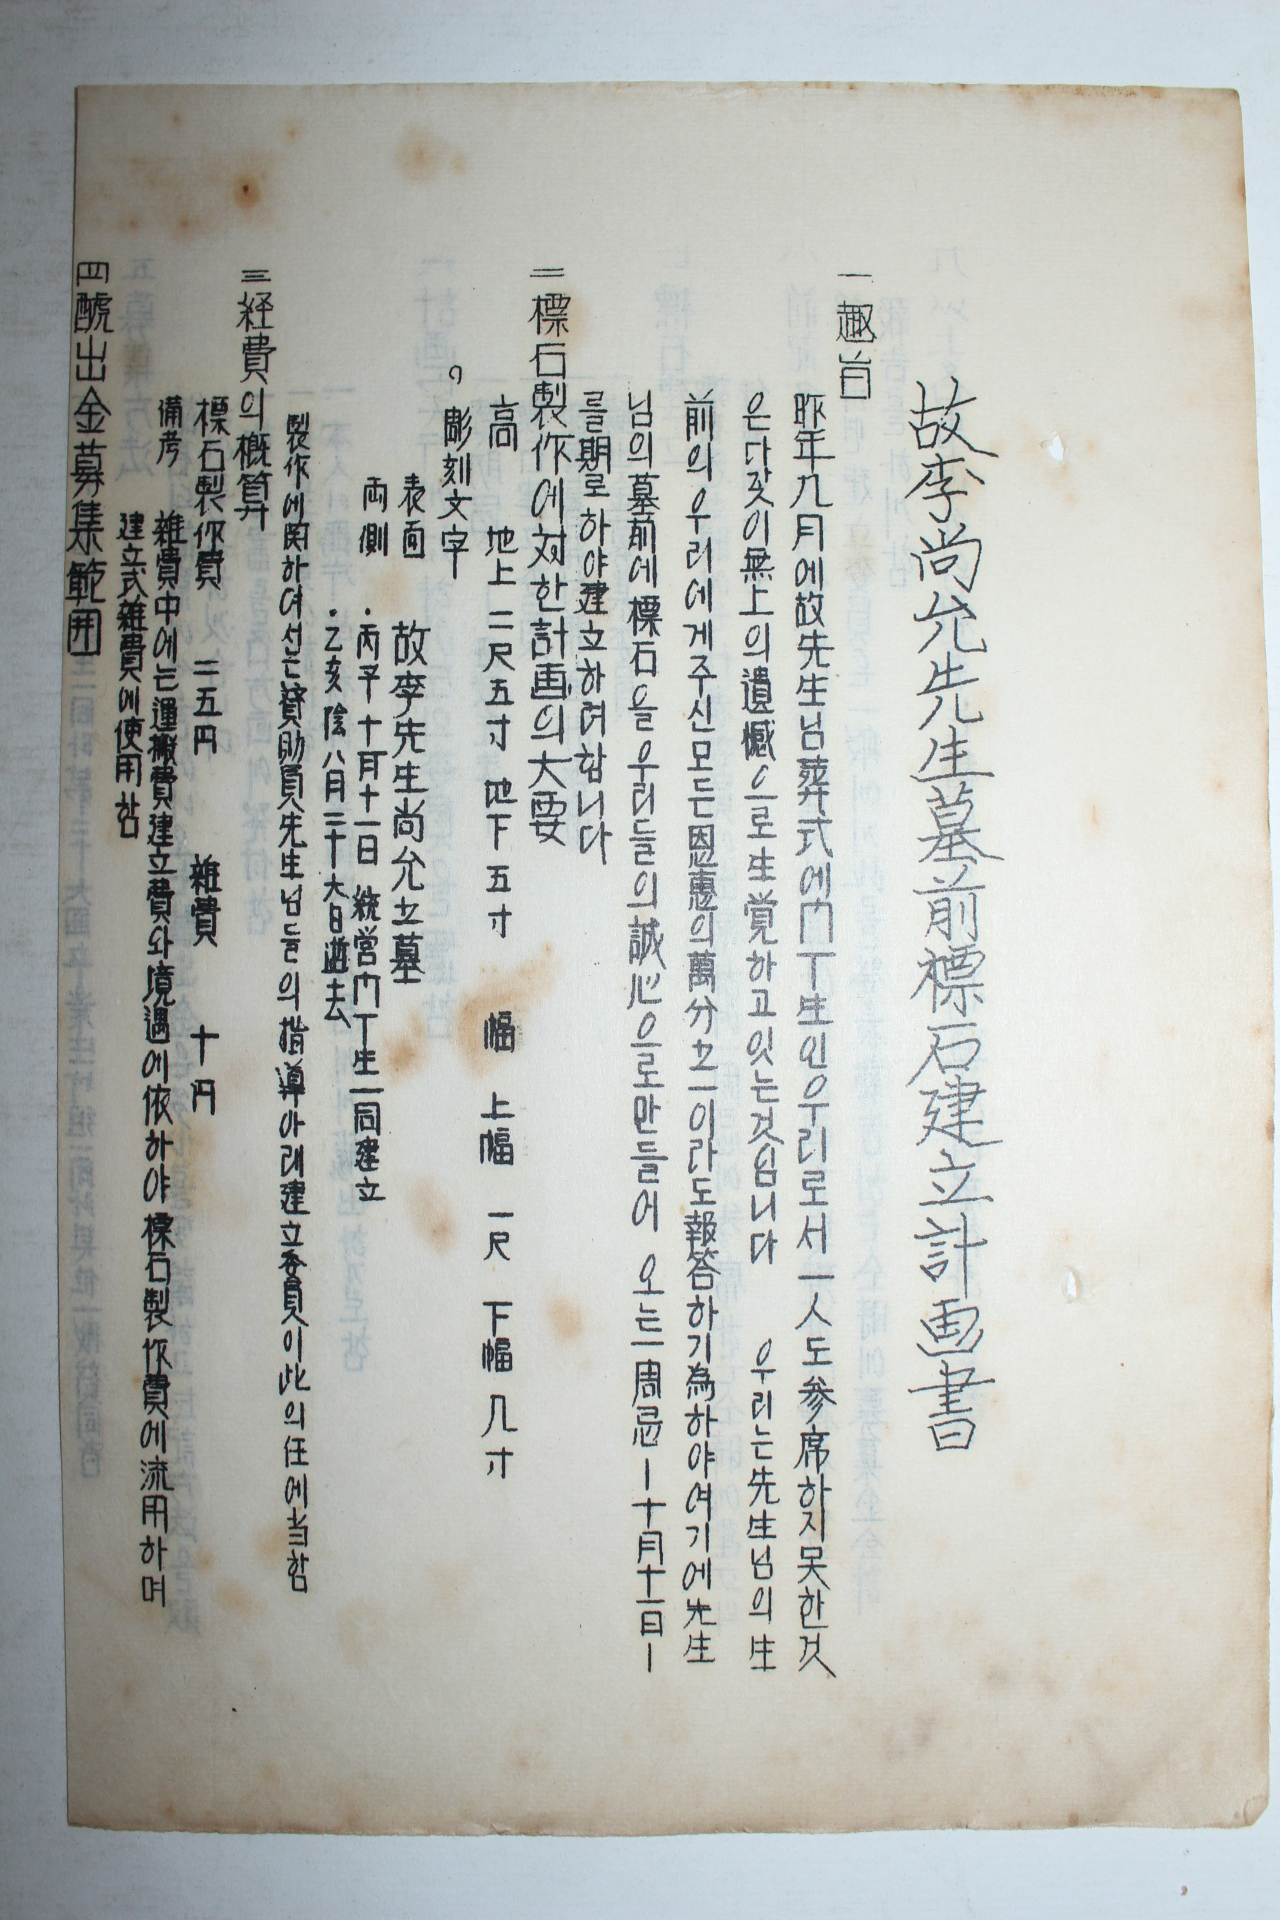 故李尚允先生墓前標石建立計画書
一 趣旨
昨年九月에故先生님葬式에門下生인우리로서 一人도参席하지못한것
은다갓이無上의遺憾으로生覚하고잇는것임니다 우리는先生님의生
前의우리에게주신모든恩惠의萬分之一이라도報答하기為하야여기에先生
님의墓前에標石을우리들의誠心으로만들어 오는一周忌ー十月十一日ー
를期로하야建立하려합니다
二 標石製作에対한計画의大要
高 地上 二尺五寸 地下 五寸 幅 上幅 一尺 下幅 几寸
彫刻文字
表面 故李先生尚允之墓
両側 ・丙子十月十一日 統営門下生一同建立
・乙亥陰八月二十六日逝去
製作에関하여선는賛助員先生님들의指導아래建立委員이此의任에当함
三 経費의概算
標石製作費 二五円 雑費 十円
備考 雑費中에는運搬費建立費와境遇에依하야標石製作費에流用하며
建立式雑費에使用함
四 醵出金募集範囲